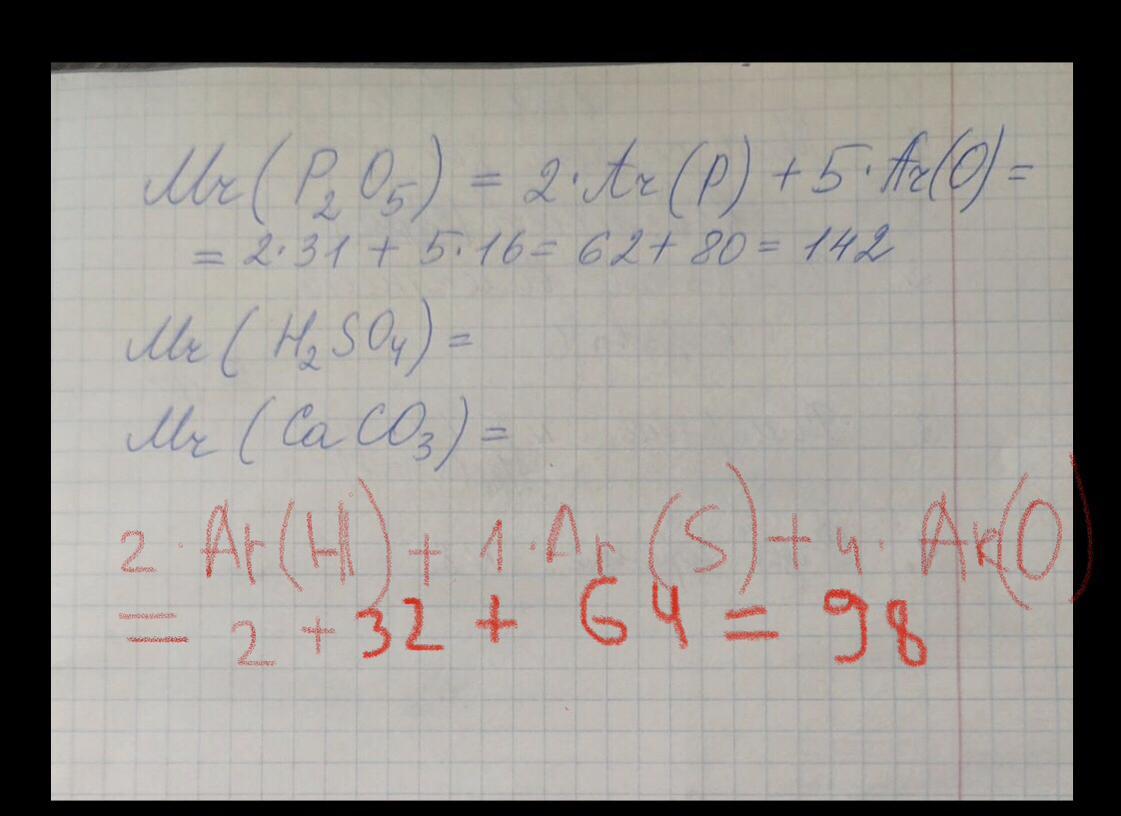 Mr(P₂O₅) = 2·Ar(P) + 5·Ar(O) =
= 2·31 + 5·16 = 62 + 80 = 142
Mr(H₂SO₄) =
Mr(CaCO₃) =
2·Ar(H) + 1·Ar(S) + 4·Ar(O)
= 2 + 32 + 64 = 98